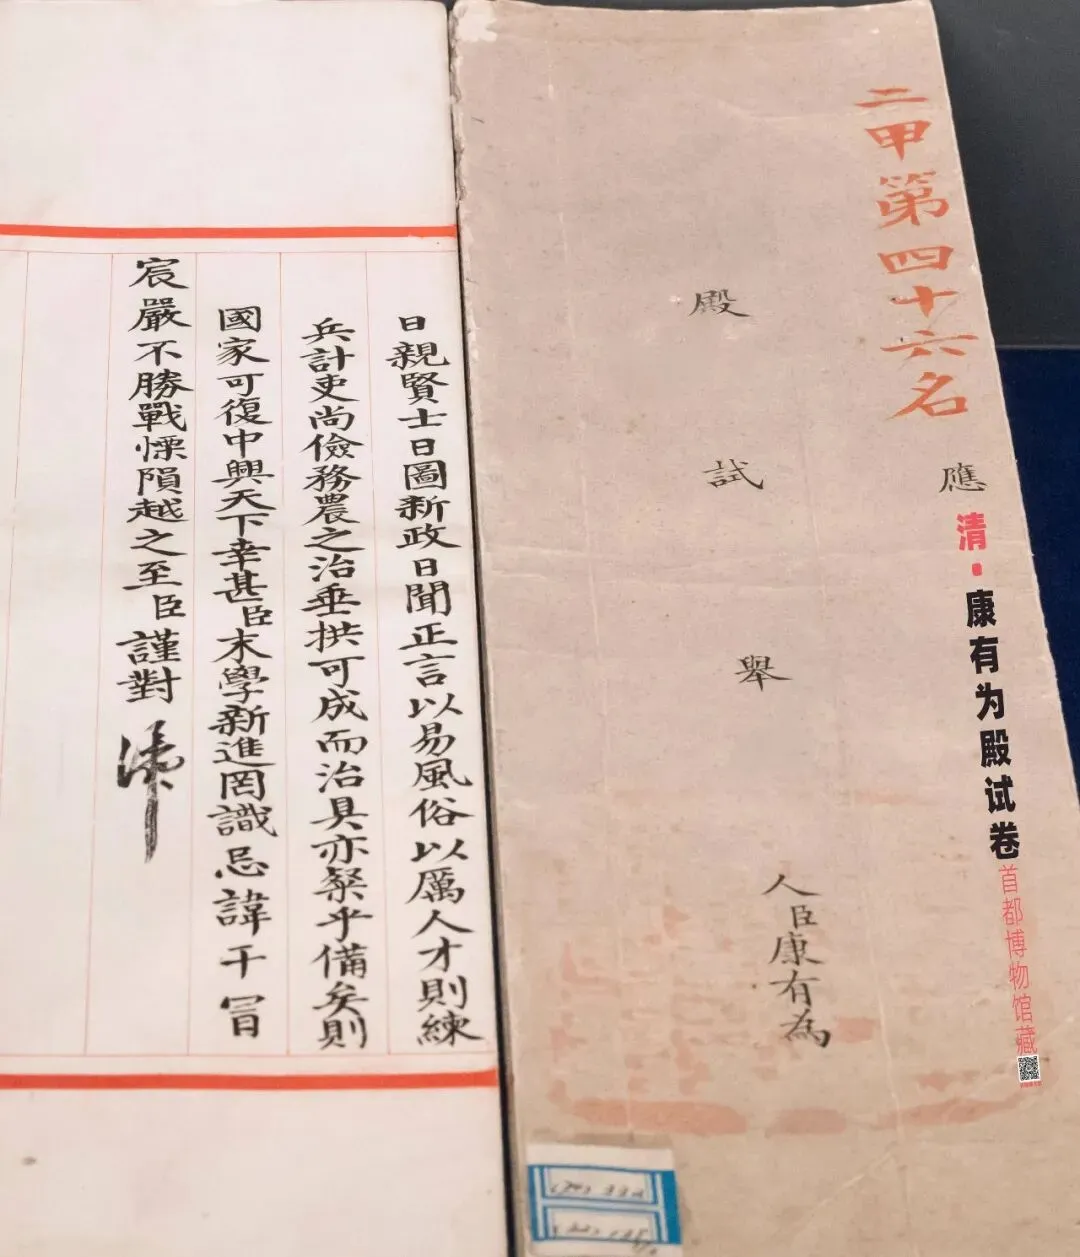 二甲第四十六名
應
殿
試
舉
人臣康有為
清·康有为殿试卷
首都博物馆藏
日親賢士日圖新政日聞正言以易風俗以厲人才則練
兵計吏尚儉務農之治垂拱可成而治具亦粲乎備矣則
國家可復中興天下幸甚臣末學新進罔識忌諱干冒
宸嚴不勝戰慄隕越之至臣謹對